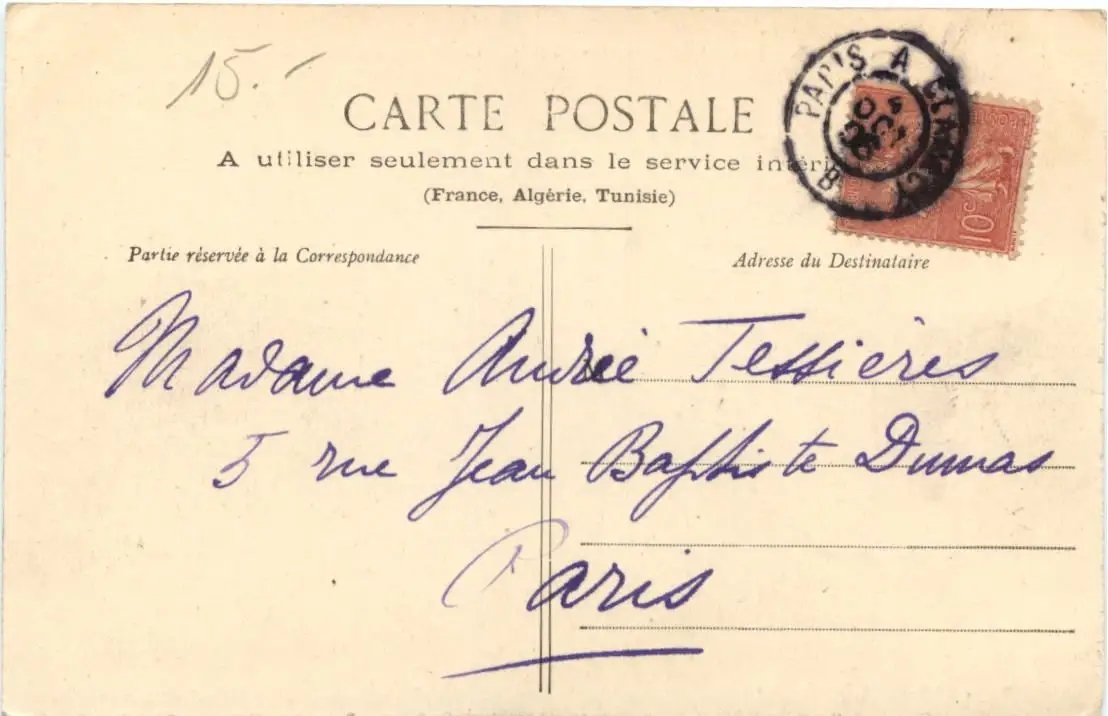 15.-
CARTE POSTALE
A utiliser seulement dans le service
(France, Algérie, Tunisie)
Partie réservée à la Correspondance
Adresse du Destinataire
PARIS A
OCT
10c
Madame André Tessières
5 rue Jean Baptiste Dumas
Paris